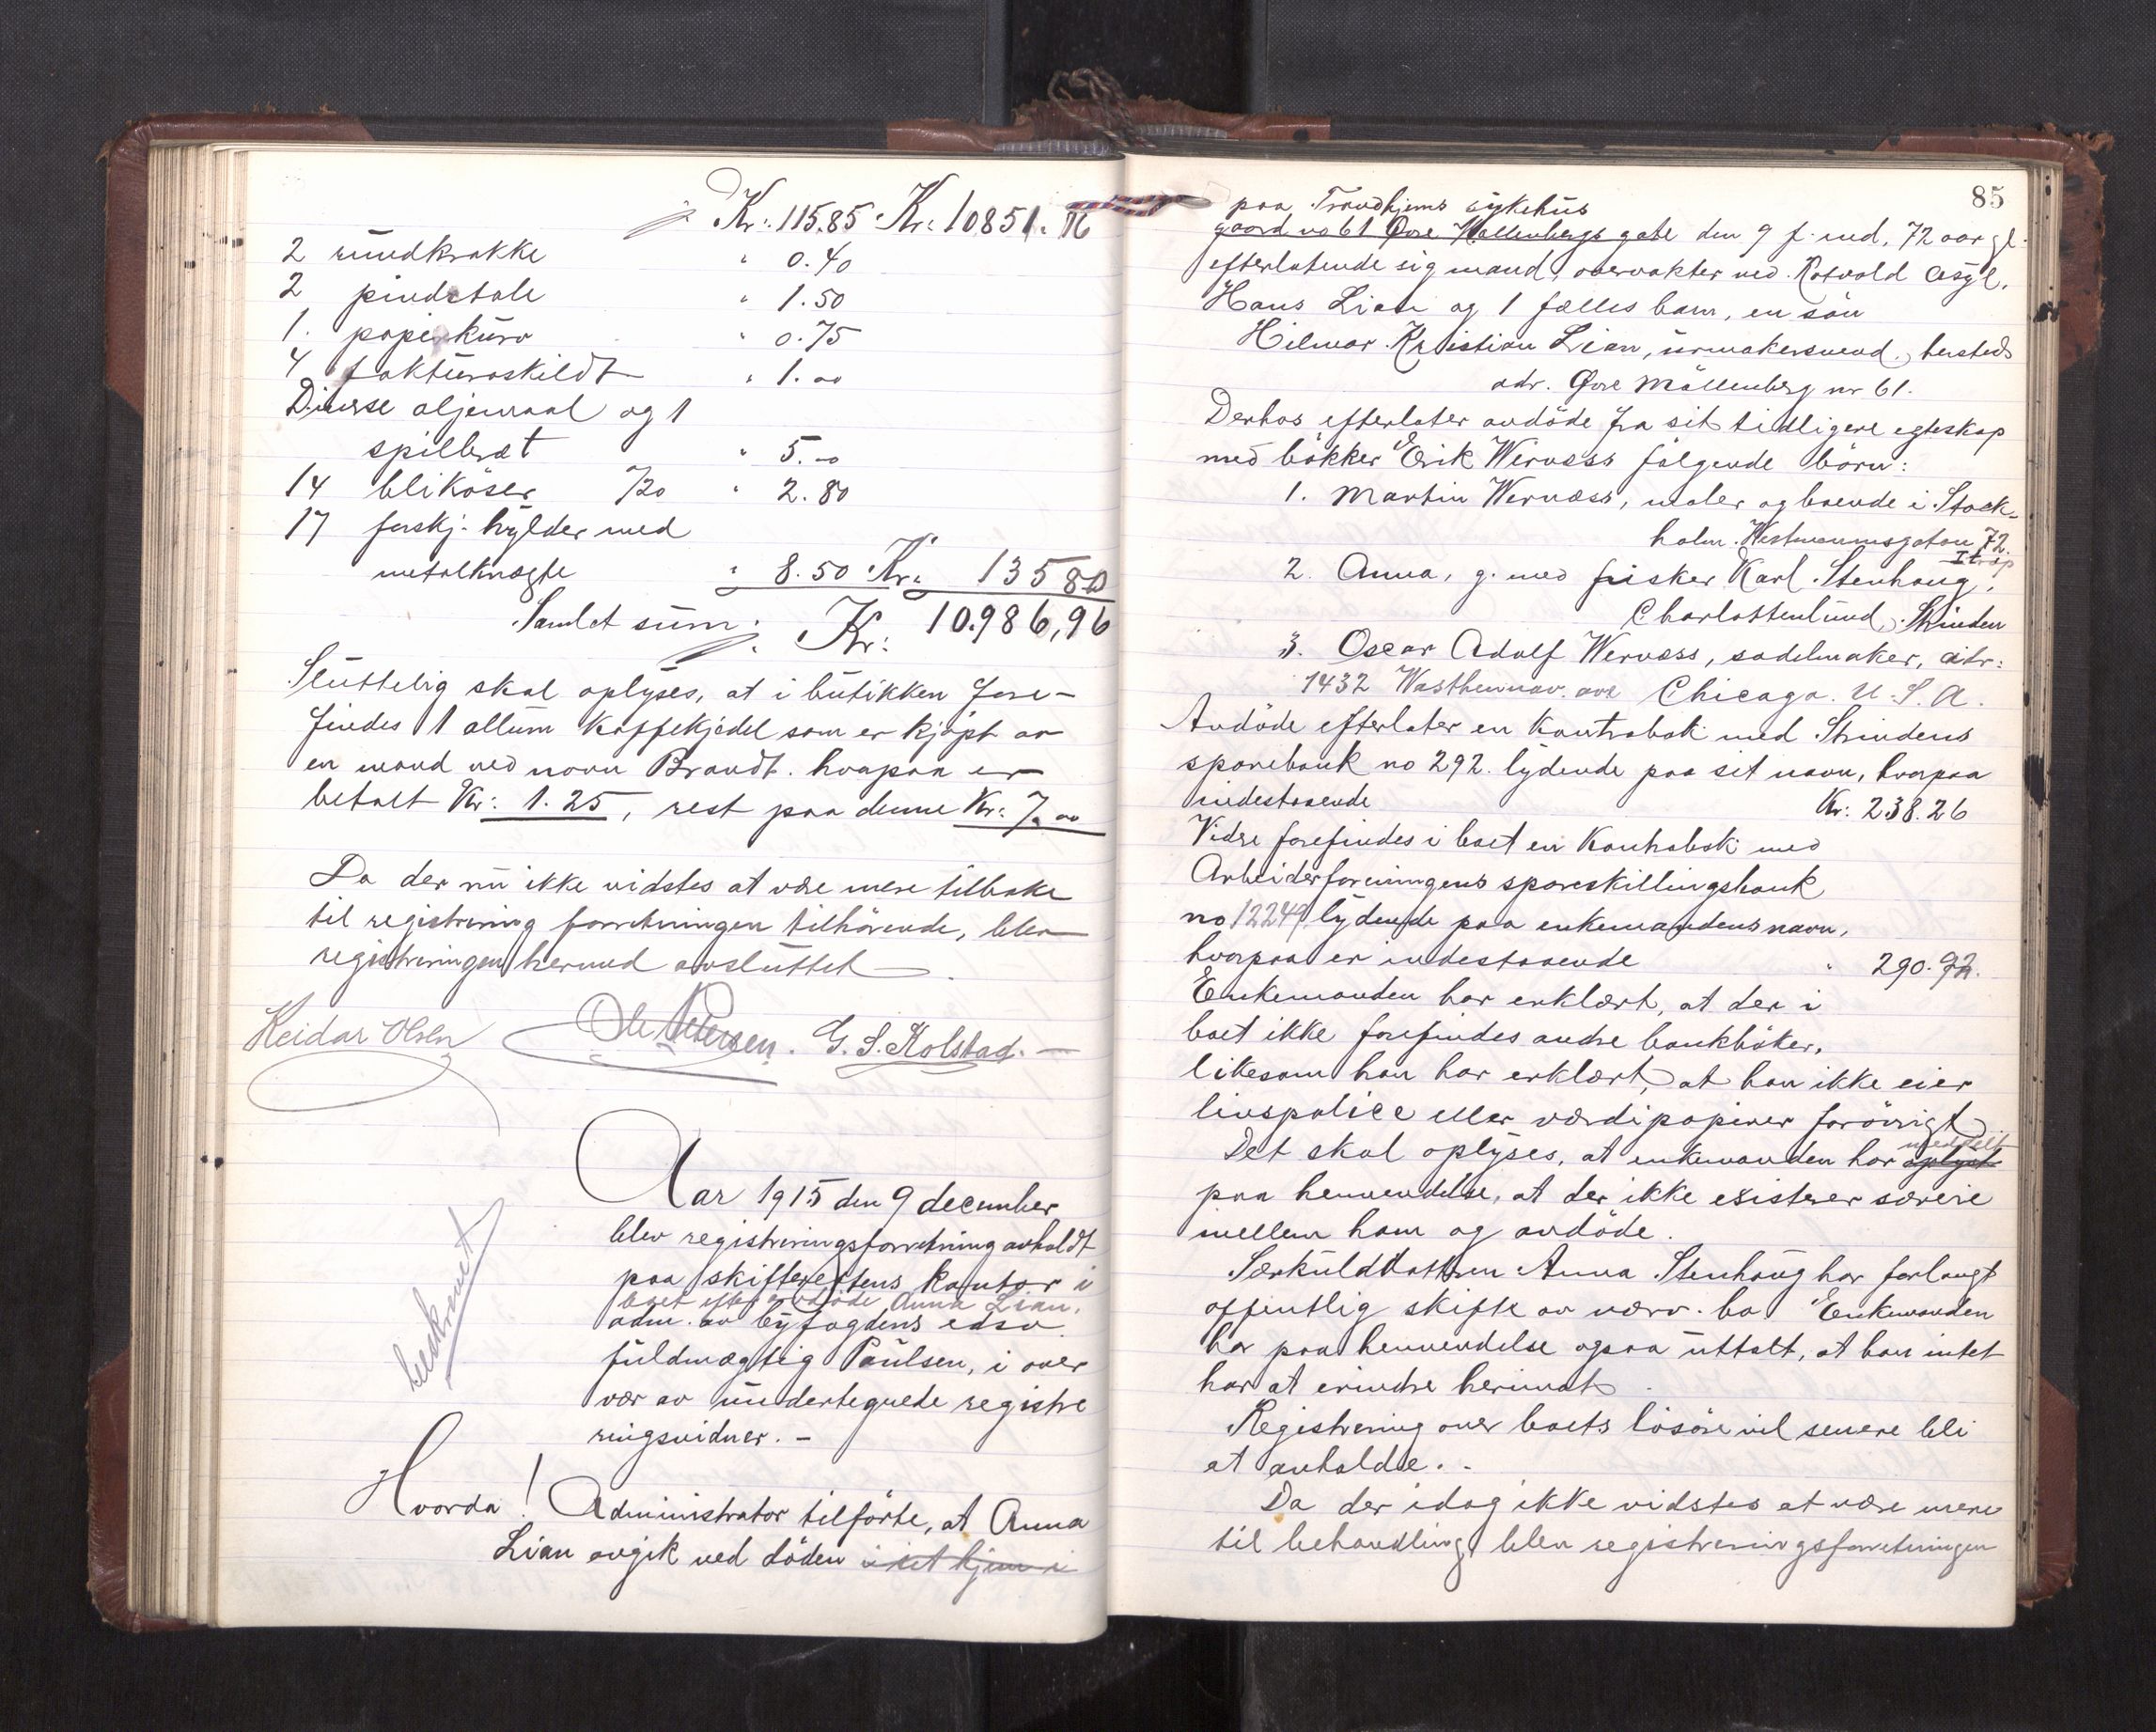 Kr: 115.85 Kr: 10851.16
2 rundkrakke " 0.40
2 pindstole " 1.50
1. papirkurv " 0.75
4 fakturaskildt " 1.00
Diverse oljemaal og 1
spillbræt " 5.00
14 blikdåser /20 " 2.80
17 forskj. hylder med
metalknægte " 8.50 Kr: 135 80
Samlet sum: Kr: 10.986,96
Sluttelig skal oplyses, at i butikken fore-
findes 1 allum kaffekjedel som er kjøpt av
en mand ved navn Brandt. hvorpaa er
betalt Kr: 1.25, rest paa denne Kr: 7.00
Da der nu ikke vidstes at være mere tilbake
til registrering forretningen tilhörende, blev
registreringen hermed avsluttet.
Reidar Olsen Ole Petersen. G. S. Kolstad. —
Aar 1915 den 9 december
blev registreringsforretning avholdt
paa skifterettens kontor i
boet efter avdöde Anna Lian,
adm. av byfogdens edsv.
fuldmægtig Paulsen, i over
vær av undertegnede registre
ringsvidner. –
beskrevet
Hvorda! Administrator tilförte, at Anna
Lian avgik ved döden i sit hjem i
85
paa Trondhjems sykehus
gaard no 61 Övre Möllenbergs gate den 9 f. md, 72 aar gl.
efterlatende sig mand, overvakter ved Rotvold asyl,
Hans Lian og 1 fælles barn, en sön
Hilmar Kristian Lian, urmakersvend, hersteds
adr. Övre Möllenberg nr 61.
Derhos efterlater avdöde fra sit tidligere egteskap
med bökker Erik Wernæss fölgende börn:
1. Martin Wernæss, maler og boende i Stock-
holm. Westmannsgatan 72.
I trap
2. Anna, g. med fisker Karl Stenhaug,
Charlottenlund, Strinden
3. Oscar Adolf Wernæss, sadelmaker, adr:
1432 ave Chicago. U. S. A.
Avdöde efterlater en kontrabok med Strindens
sparebank no 292. lydende paa sit navn, hvorpaa
indestaaende Kr: 238.26
Vidre forefindes i boet en kontrabok med
Arbeiderforeningens spareskillingsbank
no 12249 lydende paa enkemandens navn,
hvorpaa er indestaaende " 290.92.
Enkemanden har erklært, at der i
boet ikke forefindes andre bankböker,
likesom han har erklært, at han ikke eier
livspolice eller værdipapirer forövrigt.
meddelt
Det skal oplyses, at enkemanden har oplyst
paa henvendelse, at der ikke existerer særeie
mellem ham og avdöde.
Særkuldtdattren Anna Stenhaug har forlangt
offentlig skifte av nærv. bo Enkemanden
har paa henvendelse ogsaa uttalt, at han intet
har at erindre herimot.
Registrering over boets lösöre vil senere bli
at avholde. -
Da der idag ikke vidstes at være mere
til behandling blev registreringsforretningen